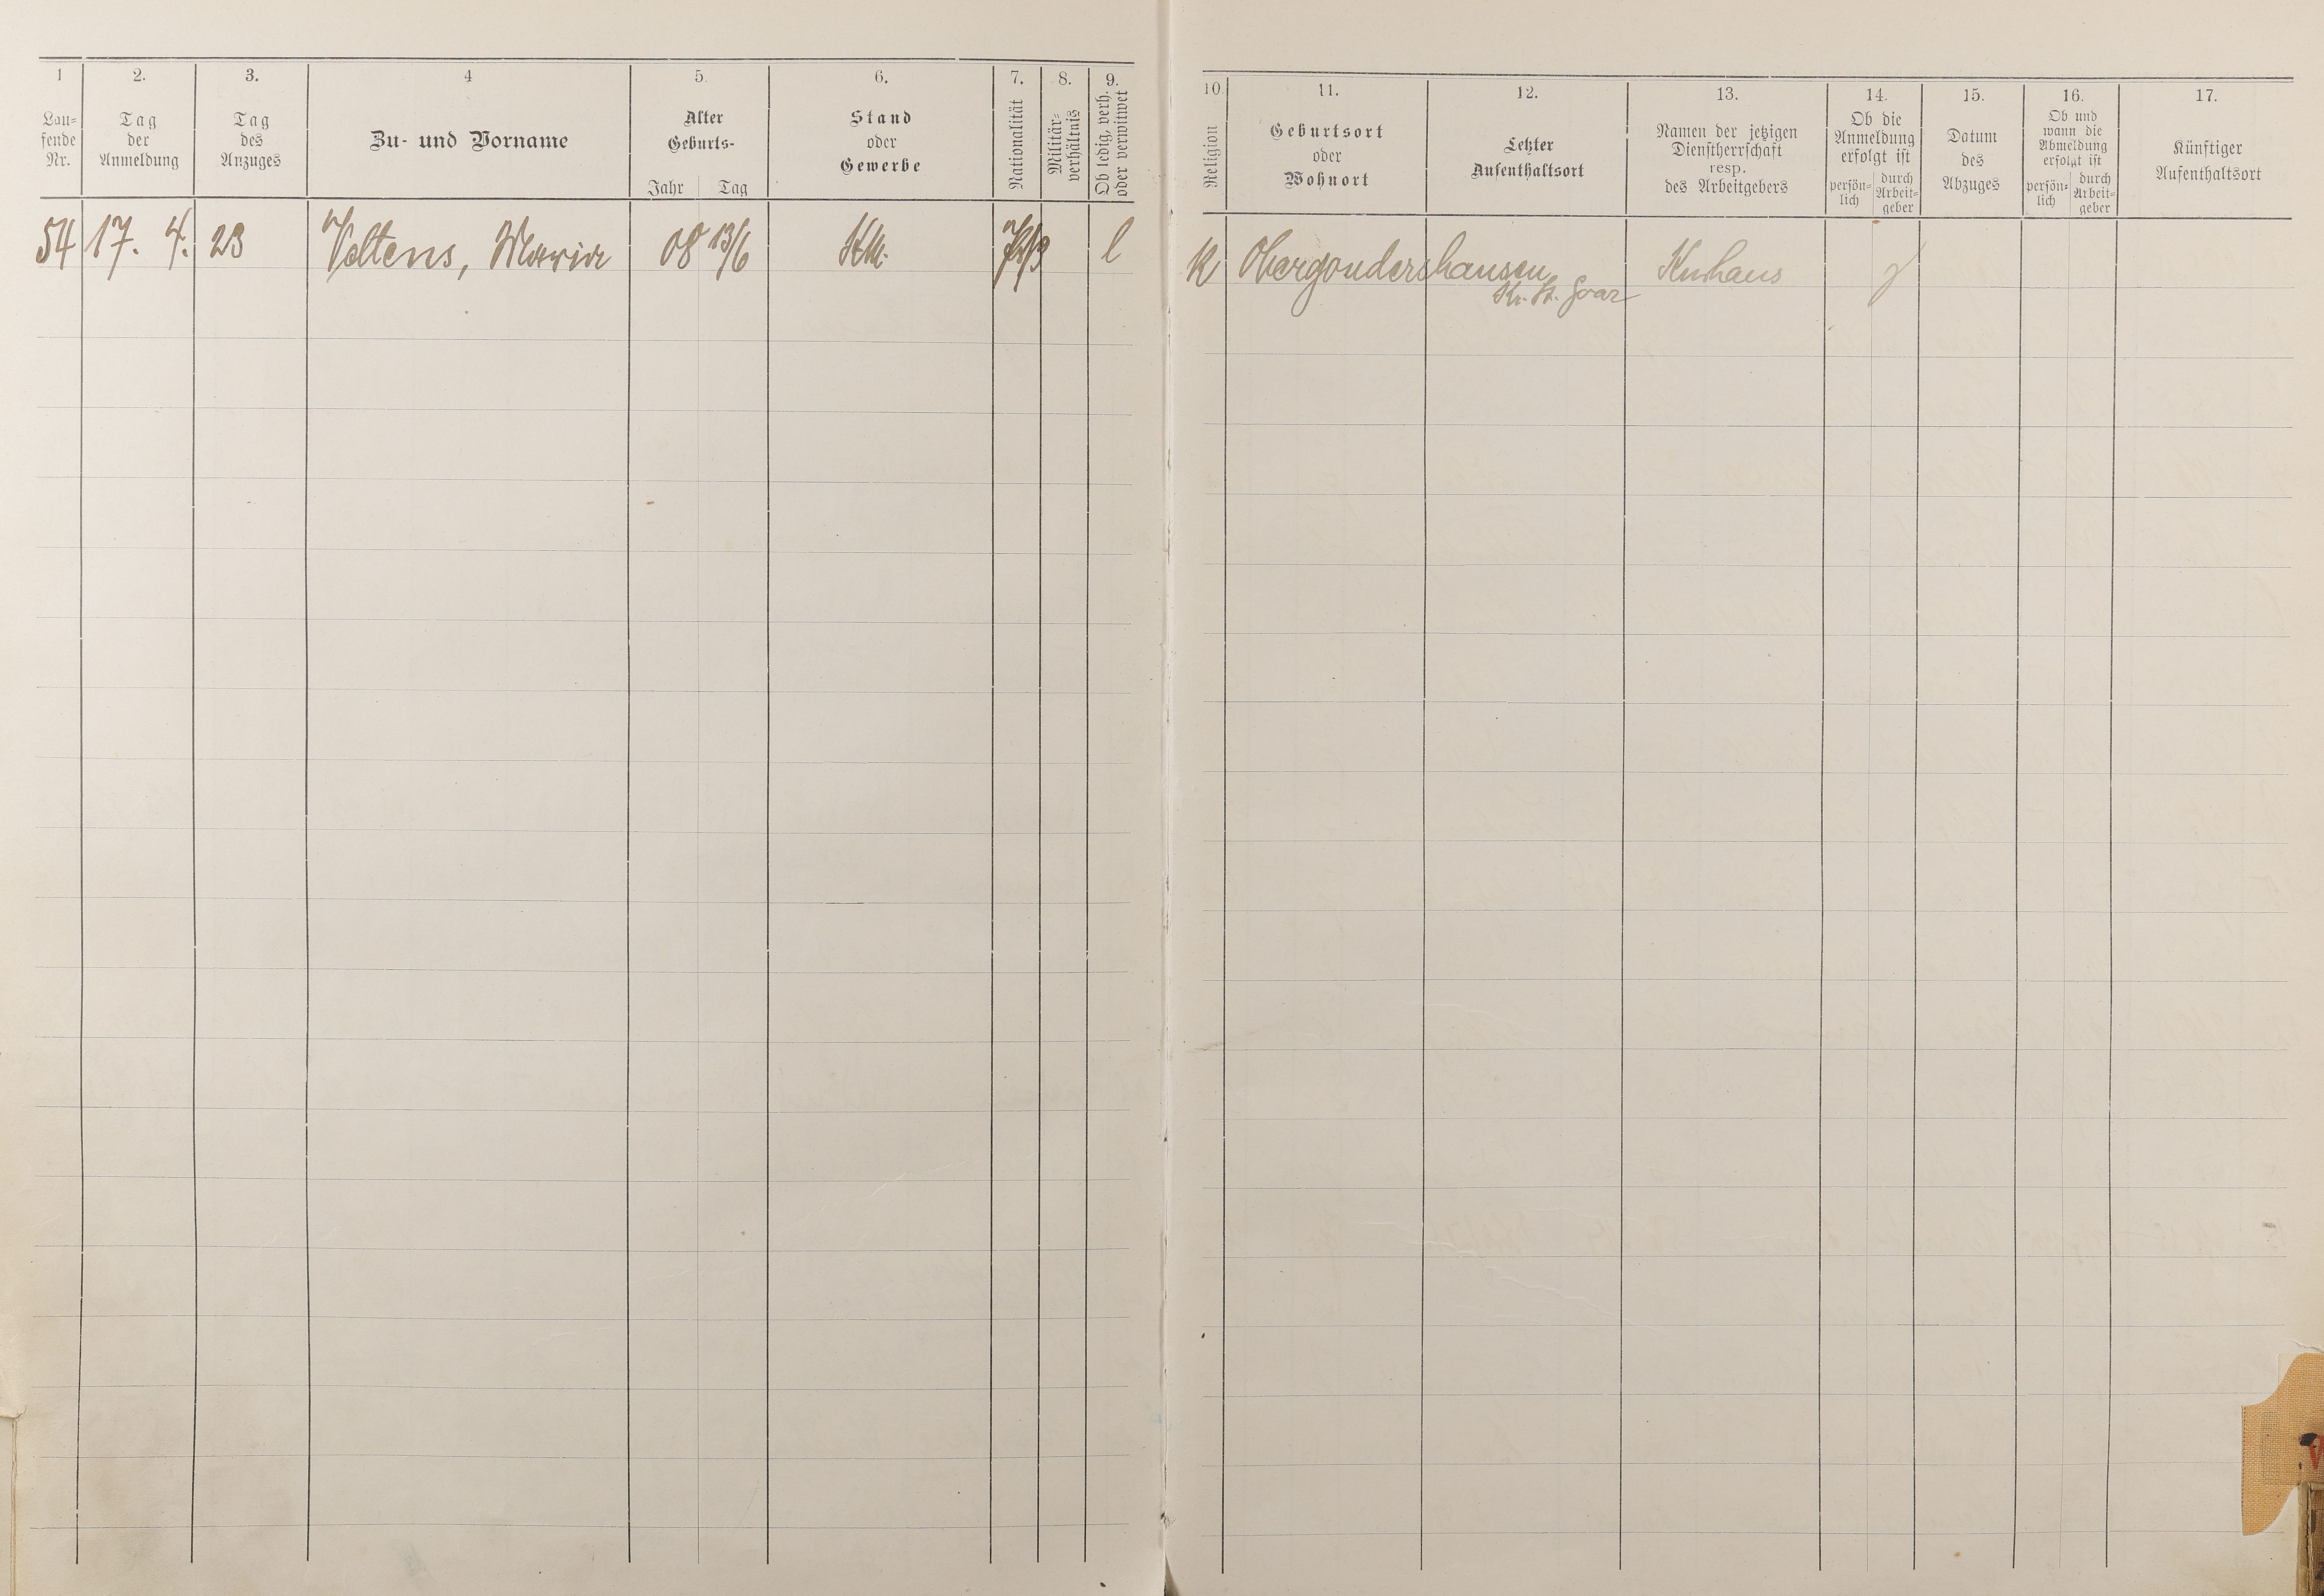 1 2. 3. 4 5. 6. 7. 8. 9.
Lau-
fende
Nr.
Tag
der
Anmeldung
Tag
des
Anzuges
Zu- und Vorname
Alter
Geburts-
Jahr Tag
Stand
oder
Gewerbe
Nationalität
Militär-
verhältnis
Ob ledig, verh.
oder verwitwet
54 17. 4. 23 Veltens, Maria 08 13/6 l
10. 11. 12. 13. 14. 15. 16. 17.
Religion
Geburtsort
oder
Wohnort
Letzter
Aufenthaltsort
Namen der jetzigen
Dienstherrschaft
resp.
des Arbeitgebers
Ob die
Anmeldung
erfolgt ist
persön-
lich
durch
Arbeit-
geber
Datum
des
Abzuges
Ob und
wann die
Abmeldung
erfolgt ist
persön-
lich
durch
Arbeit-
geber
Künftiger
Aufenthaltsort
K Obergondershausen Kurhaus
Kr. St. Goar